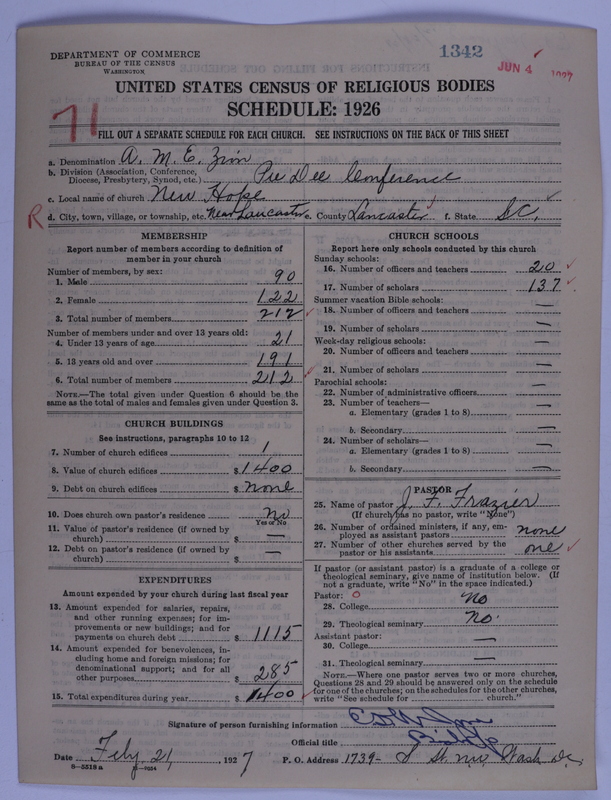 DEPARTMENT OF COMMERCE
BUREAU OF THE CENSUS
WASHINGTON
1342
JUN 4 1927
UNITED STATES CENSUS OF RELIGIOUS BODIES
SCHEDULE: 1926
71
FILL OUT A SEPARATE SCHEDULE FOR EACH CHURCH. SEE INSTRUCTIONS ON THE BACK OF THIS SHEET
a. Denomination A. M. E. Zion
b. Division (Association, Conference, Diocese, Presbytery, Synod, etc.) Pee Dee Conference
c. Local name of church New Hope
R d. City, town, village, or township, etc. Near Lancaster e. County Lancaster f. State S.C.
MEMBERSHIP
Report number of members according to definition of
member in your church
Number of members, by sex:
1. Male 90
2. Female 122
3. Total number of members 212
Number of members under and over 13 years old:
4. Under 13 years of age 21
5. 13 years old and over 191
6. Total number of members 212
NOTE.—The total given under Question 6 should be the
same as the total of males and females given under Question 3.
CHURCH BUILDINGS
See instructions, paragraphs 10 to 12
7. Number of church edifices 1
8. Value of church edifices $ 1400
9. Debt on church edifices $ none
10. Does church own pastor's residence no
Yes or No
11. Value of pastor's residence (if owned by
church) $ —
12. Debt on pastor's residence (if owned by
church) $ —
EXPENDITURES
Amount expended by your church during last fiscal year
13. Amount expended for salaries, repairs,
and other running expenses; for im-
provements or new buildings; and for
payments on church debt $ 1115
14. Amount expended for benevolences, in-
cluding home and foreign missions; for
denominational support; and for all
other purposes $ 285
15. Total expenditures during year $ 1400
CHURCH SCHOOLS
Report here only schools conducted by this church
Sunday schools:
16. Number of officers and teachers 20
17. Number of scholars 137
Summer vacation Bible schools:
18. Number of officers and teachers —
19. Number of scholars —
Week-day religious schools:
20. Number of officers and teachers —
21. Number of scholars —
Parochial schools:
22. Number of administrative officers —
23. Number of teachers—
a. Elementary (grades 1 to 8) —
b. Secondary —
24. Number of scholars—
a. Elementary (grades 1 to 8) —
b. Secondary —
PASTOR
25. Name of pastor J. F. Frazier
(If church has no pastor, write "None")
26. Number of ordained ministers, if any, em-
ployed as assistant pastors none
27. Number of other churches served by the
pastor or his assistants one
If pastor (or assistant pastor) is a graduate of a college or
theological seminary, give name of institution below. (If
not a graduate, write "No" in the space indicated.)
Pastor: 0
28. College No
29. Theological seminary No.
Assistant pastor:
30. College —
31. Theological seminary —
NOTE.—Where one pastor serves two or more churches,
Questions 28 and 29 should be answered only on the schedule
for one of the churches; on the schedules for the other churches,
write "See schedule for church."
Signature of person furnishing information
Official title Bishop
Date Feby. 21, 1927 P. O. Address 1739- St. N.W. Wash. D.C.
8—5518 a